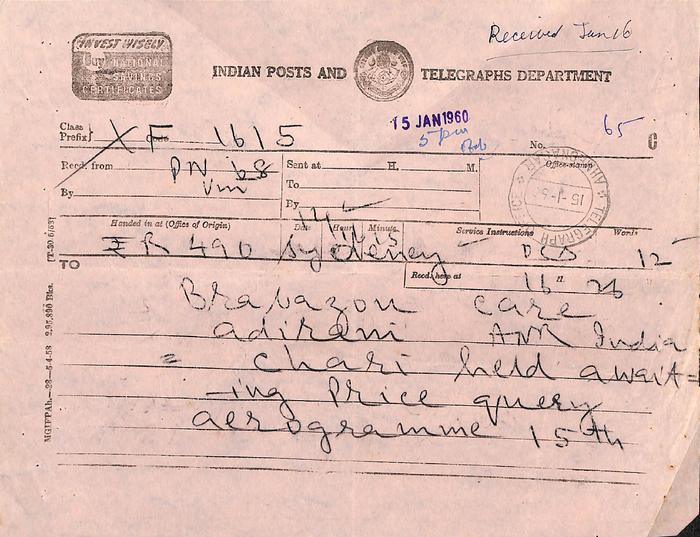 Received Jan 16
INVEST WISELY
Buy NATIONAL
SAVINGS
CERTIFICATES
INDIAN POSTS AND TELEGRAPHS DEPARTMENT
15 JAN 1960
5 pm
Class
Prefix} Code XF 1615 No. 65 C
Recd. from Sent at H. M. Office-stamp
To
By By
TELEGRAPH
Handed in at (Office of Origin) Date Hour Minute Service Instructions Words
R 490 Sydney 12
Recd. here at 16 H. 26
TO
Brabazon care
adirani AMR India
= chari held await=
-ing Price query
aerogramme 15th
[T-30.6/53]
MGIFPAh.—28—5-4-58 2,95,890 Bks.